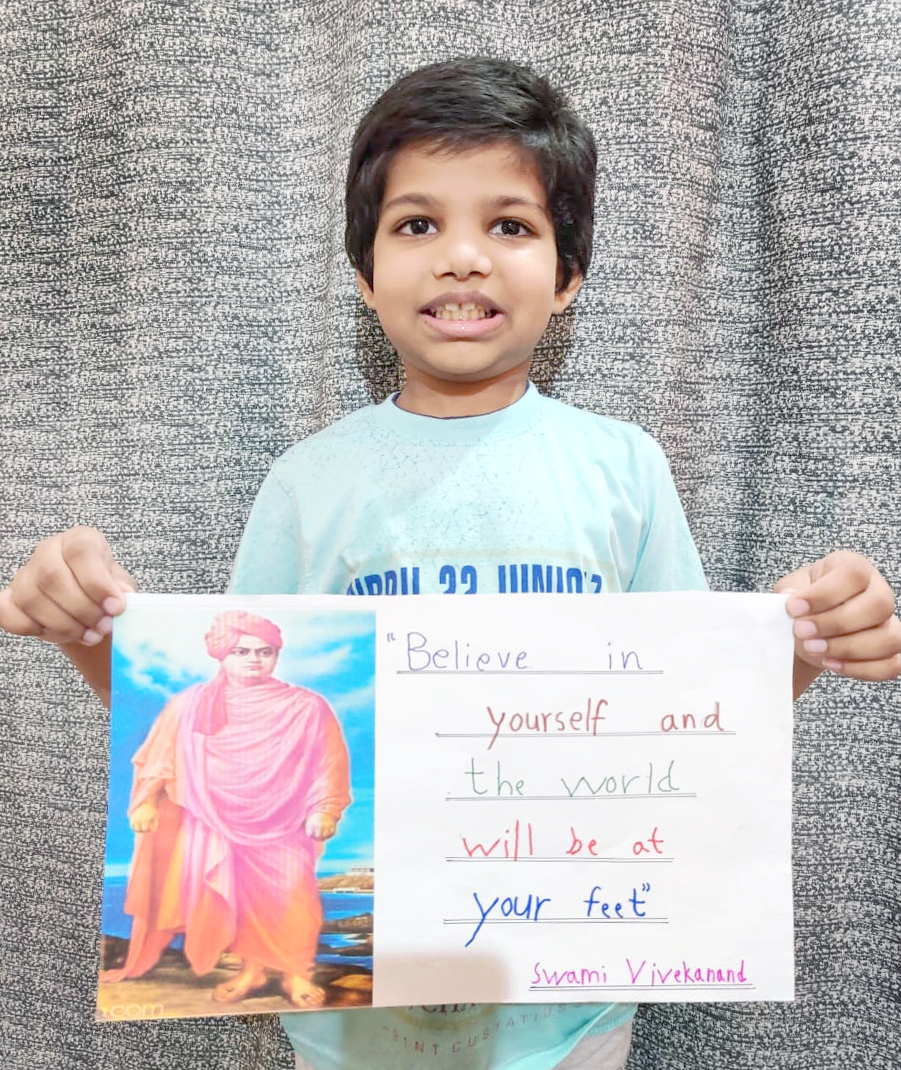 "Believe in
yourself and
the world
will be at
your feet"
Swami Vivekanand
.com